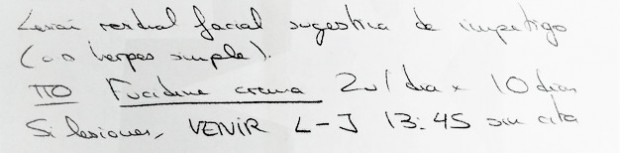 Lesión residual facial sugestiva de impétigo
(o herpes simple).
TTO Fucidine crema 2v/día x 10 días
Si lesiones, VENIR L-J 13:45 sin cita